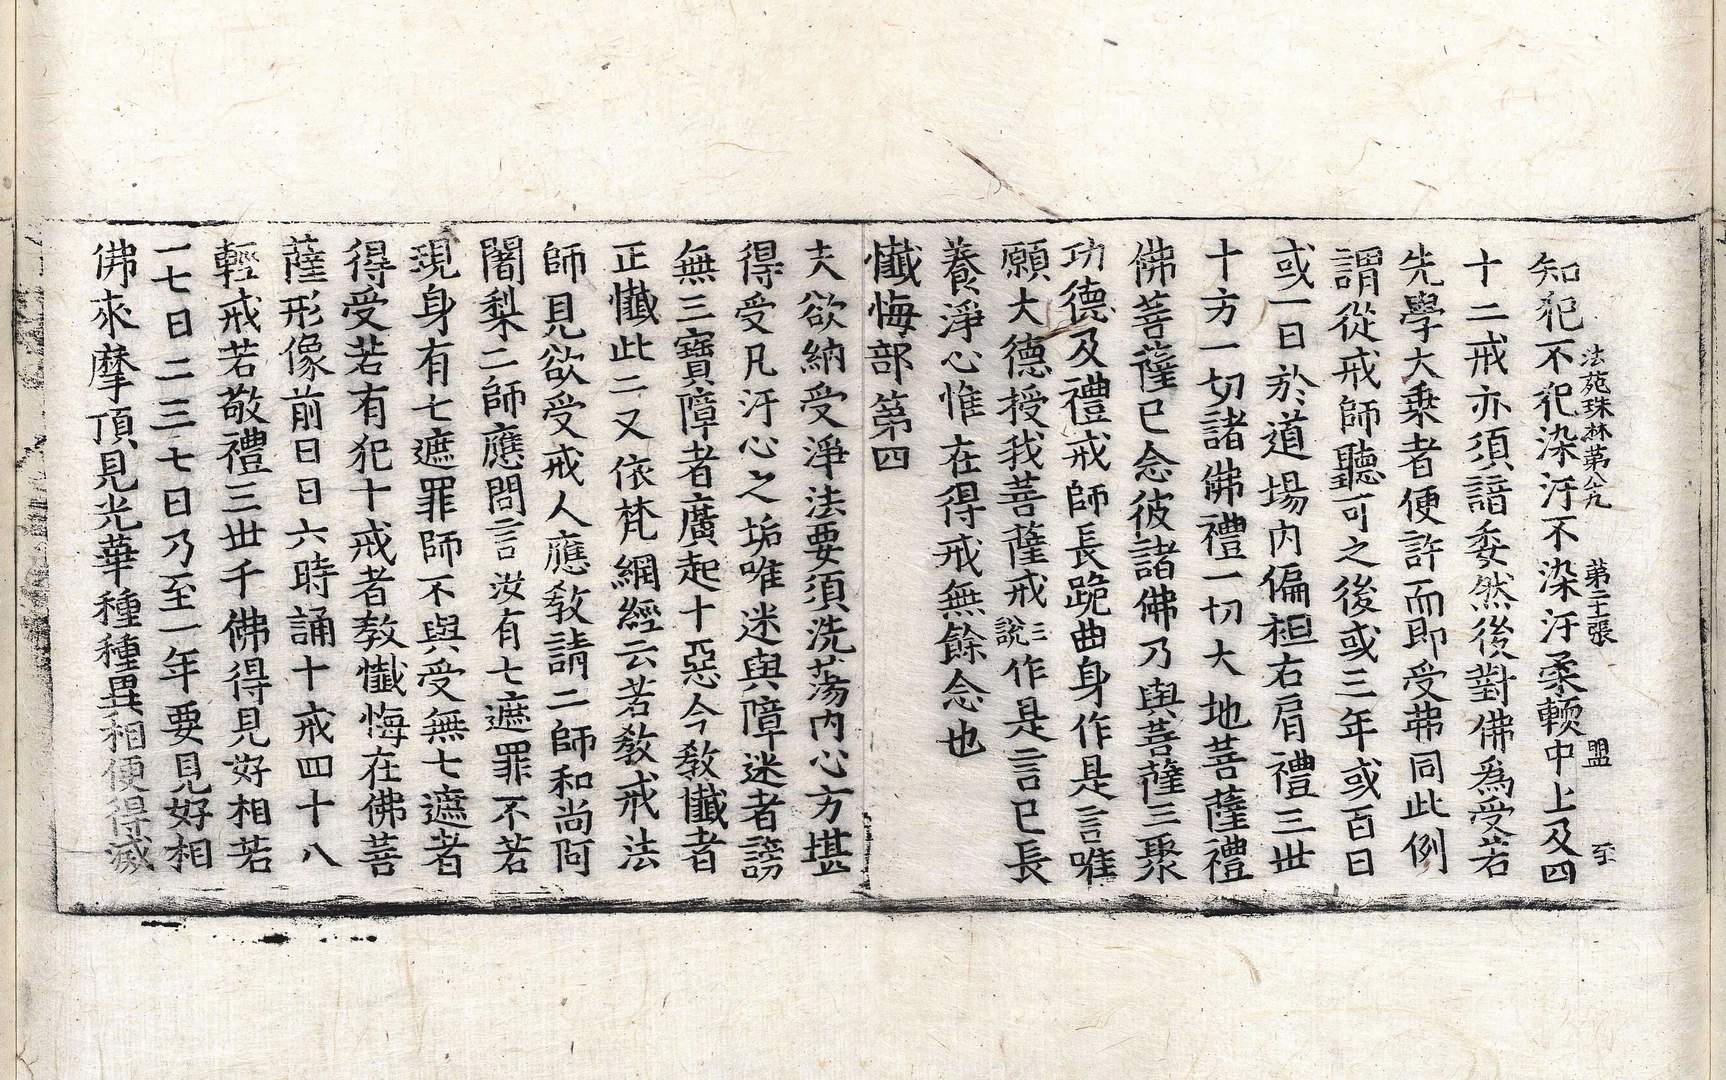 法苑珠林第八九 第二十張 盟 至
知犯不犯染汙不染汙柔輭中上及四
十二戒亦須諳委然後對佛爲受若
先學大乗者便許而即受苐同此例
謂從戒師聽可之後或三年或百日
或一日於道場內偏袒右肩禮三世
十方一切諸佛禮一切大地菩薩禮
佛菩薩已念彼諸佛乃與菩薩三聚
功德及禮戒師長跪曲身作是言唯
願大德授我菩薩戒三說作是言已長
養淨心惟在得戒無餘念也
懺悔部第四
夫欲納受淨法要須洗蕩內心方堪
得受凡汙心之垢唯迷與障迷者謗
無三寶障者廣起十惡今敎懺者
正懺此二又依梵網經云若敎戒法
師見欲受戒人應敎請二師和尚阿
闍梨二師應問言汝有七遮罪不若
現身有七遮罪師不與受無七遮者
得受若有犯十戒者敎懺悔在佛菩
薩形像前日日六時誦十戒四十八
輕戒若敬禮三世千佛得見好相若
一七日二三七日乃至一年要見好相
佛來摩頂見光華種種異相便得滅